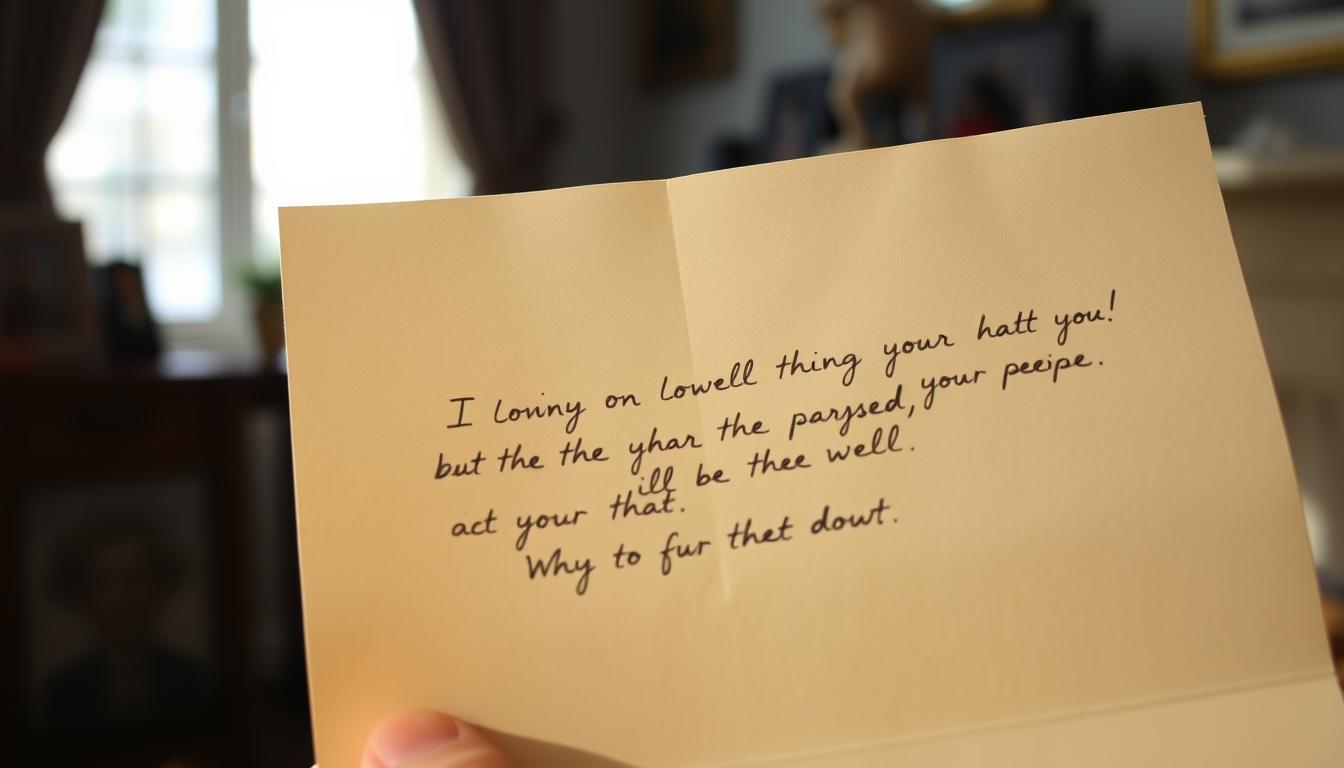 I loviny on lowell thing your hatt you!
but the the yhar the parysed, your peeipe.
ill be thee well.
act your that.
Why to fur thet dowt.